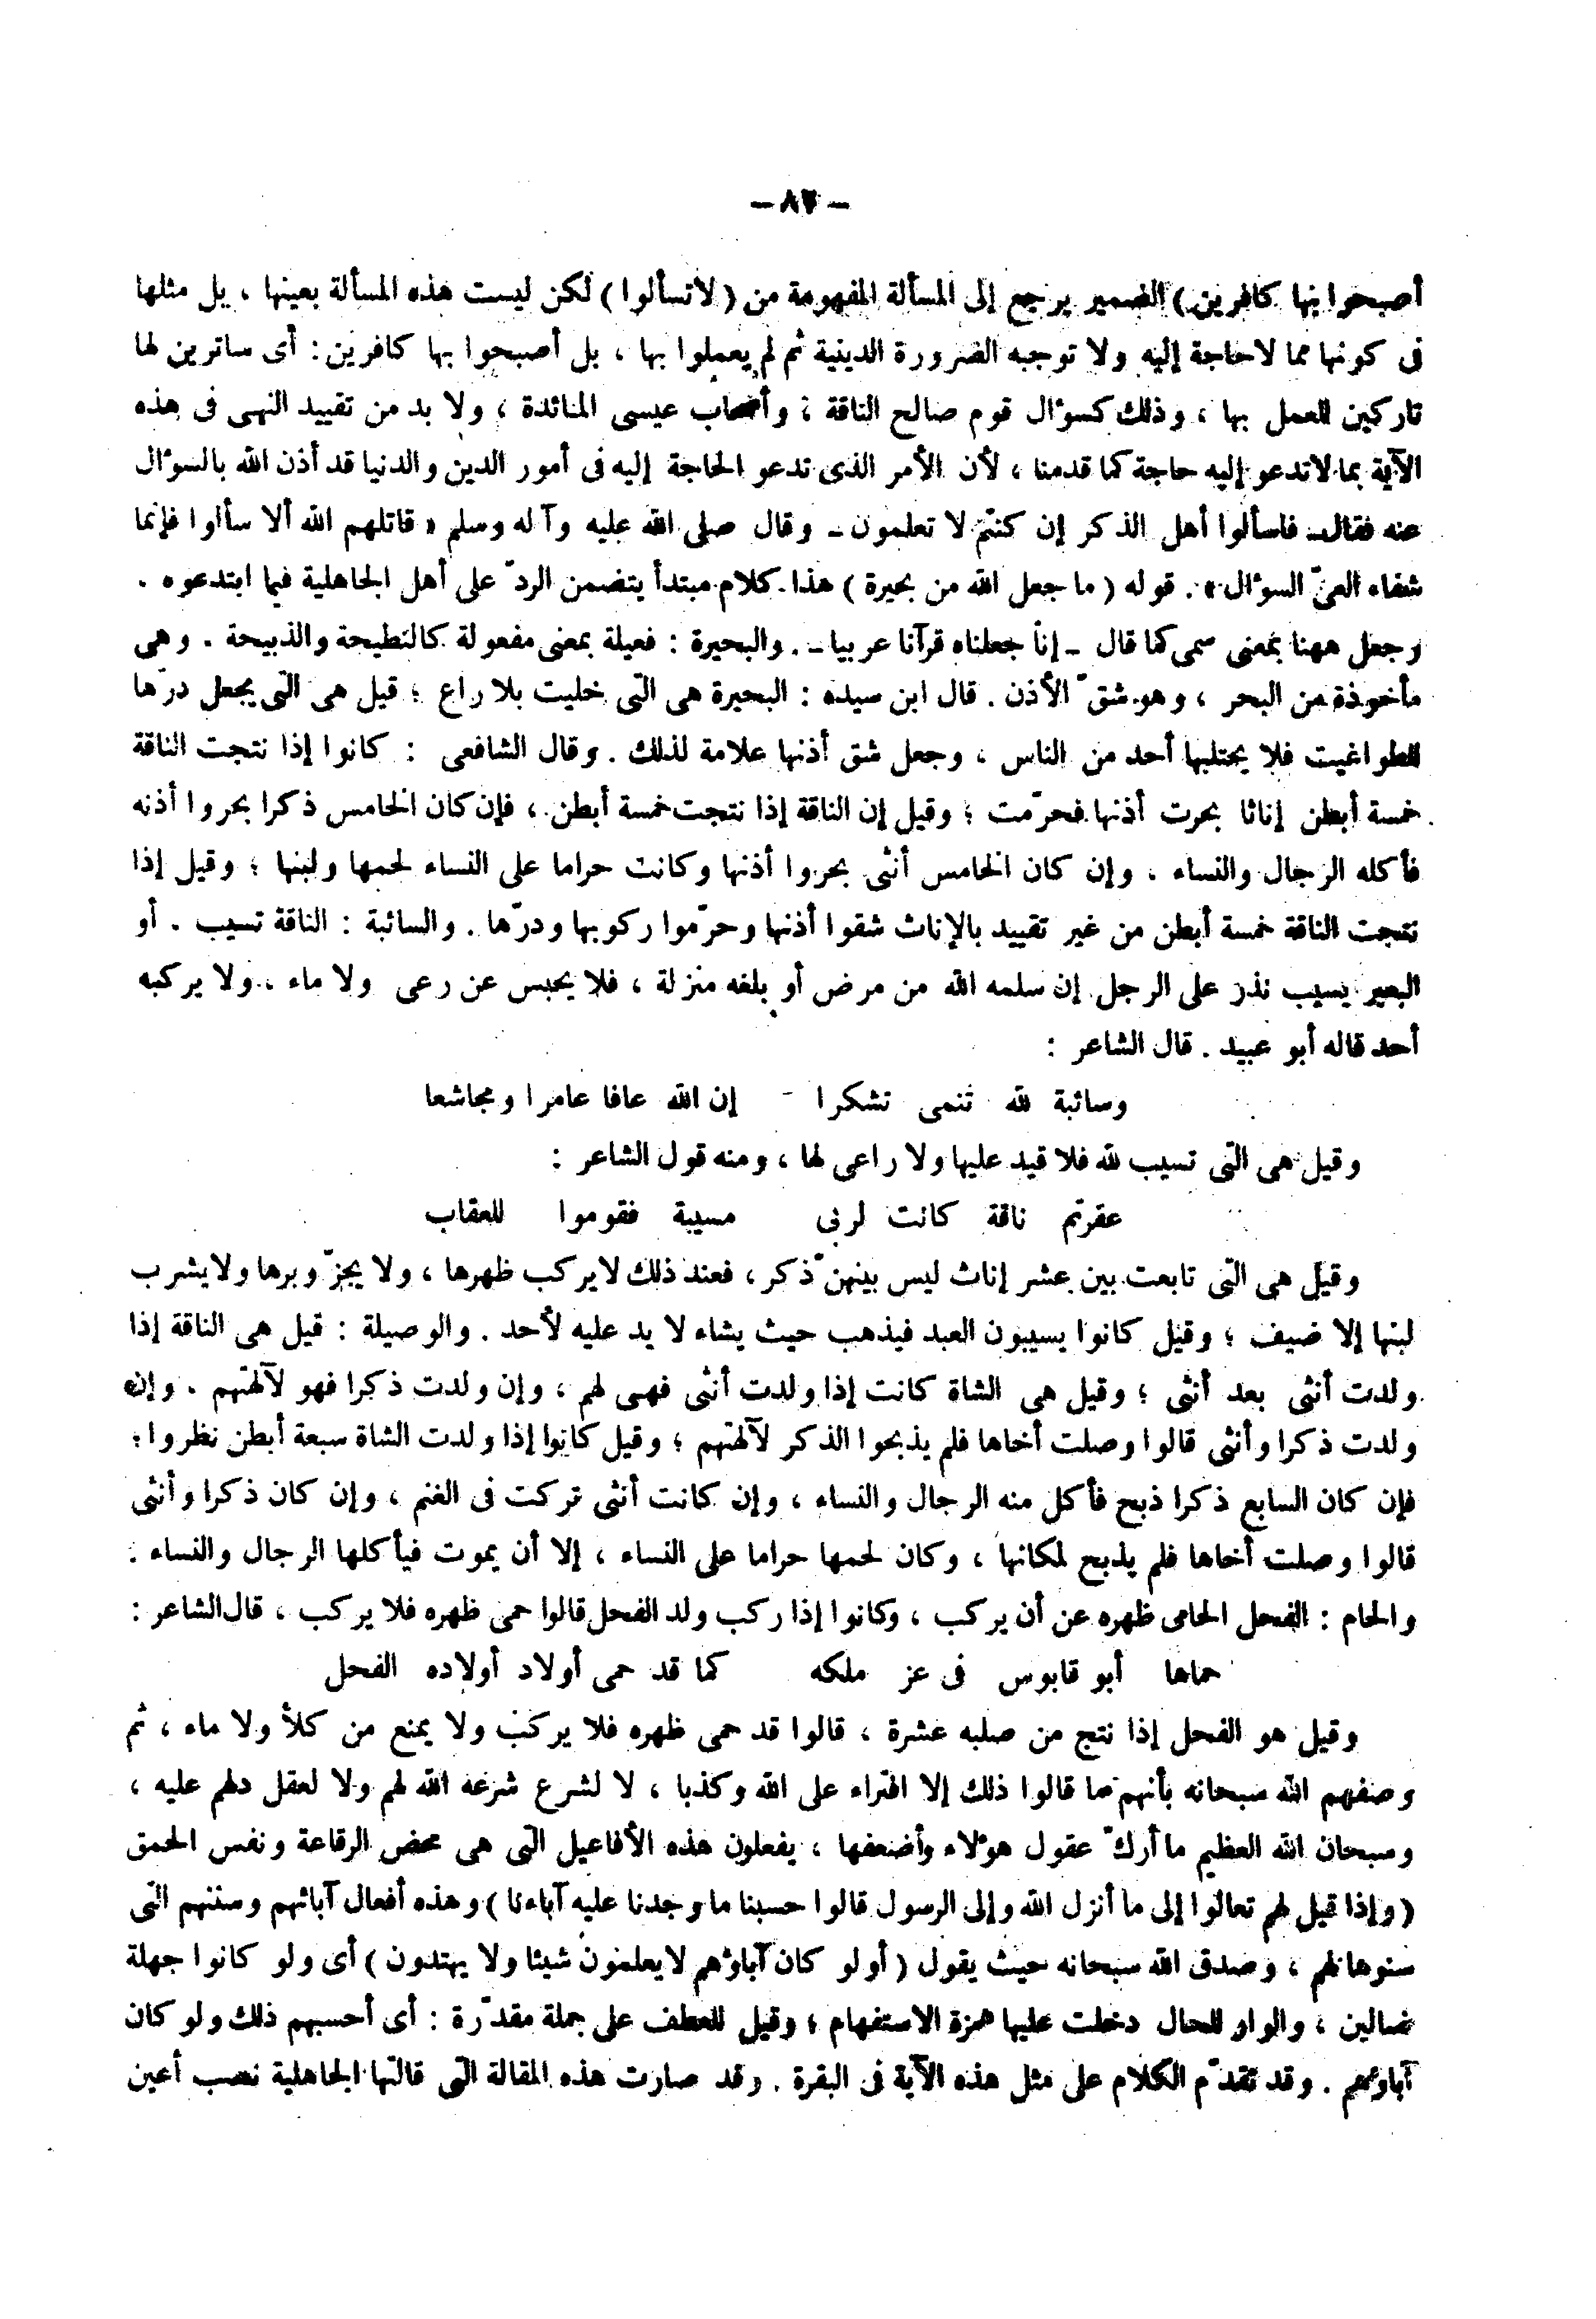 - ٨٢ -
أصبحوا بها كافرين) الضمير يرجع إلى المسألة المفهومة من (لا تسألوا) لكن ليست هذه المسألة بعينها ، بل مثلها
فى كونها مما لا حاجة إليه ولا توجبه الضرورة الدينية ثم لم يعملوا بها ، بل أصبحوا بها كافرين : أى ساترين لها
تاركين للعمل بها ، وذلك كسؤال قوم صالح الناقة ، وأصحاب عيسى المائدة ، ولا بد من تقييد النهى فى هذه
الآية بما لا تدعو إليه حاجة كما قدمنا ، لأن الأمر الذى تدعو الحاجة إليه فى أمور الدين والدنيا قد أذن الله بالسؤال
عنه فقال ـ فاسألوا أهل الذكر إن كنتم لا تعلمون ـ وقال صلى الله عليه وآله وسلم « قاتلهم الله ألا سألوا فإنما
شفاء العىّ السؤال » . قوله ( ما جعل الله من بحيرة ) هذا كلام مبتدأ يتضمن الردّ على أهل الجاهلية فيما ابتدعوه .
وجعل ههنا بمعنى سمى كما قال ـ إنا جعلناه قرآنا عربيا ـ . والبحيرة : فعيلة بمعنى مفعولة كالنطيحة والذبيحة . وهى
مأخوذة من البحر ، وهو شقّ الأذن . قال ابن سيده : البحيرة هى التى خليت بلا راع ؛ قيل هى التى يجعل درّها
للطواغيت فلا يحتلبها أحد من الناس ، وجعل شق أذنها علامة لذلك . وقال الشافعى : كانوا إذا نتجت الناقة
خمسة أبطن إناثا بحرت أذنها فحرّمت ؛ وقيل إن الناقة إذا نتجت خمسة أبطن ، فإن كان الخامس ذكرا بحروا أذنه
فأكله الرجال والنساء ، وإن كان الخامس أنثى بحروا أذنها وكانت حراما على النساء لحمها ولبنها ؛ وقيل إذا
نتجت الناقة خمسة أبطن من غير تقييد بالإناث شقوا أذنها وحرّموا ركوبها ودرّها . والسائبة : الناقة تسيب . أو
البعير يسيب نذر على الرجل إن سلمه الله من مرض أو بلغه منزلة ، فلا يحبس عن رعى ولا ماء ، ولا يركبه
أحد قاله أبو عبيد . قال الشاعر :
وسائبة لله تنمى تشكرا - إن الله عافا عامرا ومجاشعا
وقيل هى التى تسيب لله فلا قيد عليها ولا راعى لها ، ومنه قول الشاعر :
عقرتم ناقة كانت لربى مسيبة فقوموا للعقاب
وقيل هى التى تابعت بين عشر إناث ليس بينهنّ ذكر ، فعند ذلك لا يركب ظهرها ، ولا يجزّ وبرها ولا يشرب
لبنها إلا ضيف ؛ وقيل كانوا يسيبون العبد فيذهب حيث يشاء لا يد عليه لأحد . والوصيلة : قيل هى الناقة إذا
ولدت أنثى بعد أنثى ؛ وقيل هى الشاة كانت إذا ولدت أنثى فهى لهم ، وإن ولدت ذكرا فهو لآلهتهم . وإن
ولدت ذكرا وأنثى قالوا وصلت أخاها فلم يذبحوا الذكر لآلهتهم ؛ وقيل كانوا إذا ولدت الشاة سبعة أبطن نظروا ؛
فإن كان السابع ذكرا ذبح فأكل منه الرجال والنساء ، وإن كانت أنثى تركت فى الغنم ، وإن كان ذكرا وأنثى
قالوا وصلت أخاها فلم يذبح لمكانها ، وكان لحمها حراما على النساء ، إلا أن يموت فيأكلها الرجال والنساء .
والحام : الفحل الحامى ظهره عن أن يركب ، وكانوا إذا ركب ولد الفحل قالوا حمى ظهره فلا يركب ، قال الشاعر :
حماها أبو قابوس فى عز ملكه كما قد حمى أولاد أولاده الفحل
وقيل هو الفحل إذا نتج من صلبه عشرة ، قالوا قد حمى ظهره فلا يركب ولا يمنع من كلأ ولا ماء ، ثم
وصفهم الله سبحانه بأنهم ما قالوا ذلك إلا افتراء على الله وكذبا ، لا لشرع شرعه الله لهم ولا لعقل دلهم عليه ،
وسبحان الله العظيم ما أركّ عقول هؤلاء وأضعفها ، يفعلون هذه الأفاعيل التى هى محض الرقاعة ونفس الحمق
( وإذا قيل لهم تعالوا إلى ما أنزل الله وإلى الرسول قالوا حسبنا ما وجدنا عليه آباءنا ) وهذه أفعال آبائهم وسننهم التى
سنوها لهم ، وصدق الله سبحانه حيث يقول ( أو لو كان آباؤهم لا يعلمون شيئا ولا يهتدون ) أى ولو كانوا جهلة
ضالين ، والواو للحال دخلت عليها همزة الاستفهام ؛ وقيل للعطف على جملة مقدّرة : أى أحسبهم ذلك ولو كان
آباؤهم . وقد تقدّم الكلام على مثل هذه الآية فى البقرة . وقد صارت هذه المقالة التى قالتها الجاهلية نصب أعين